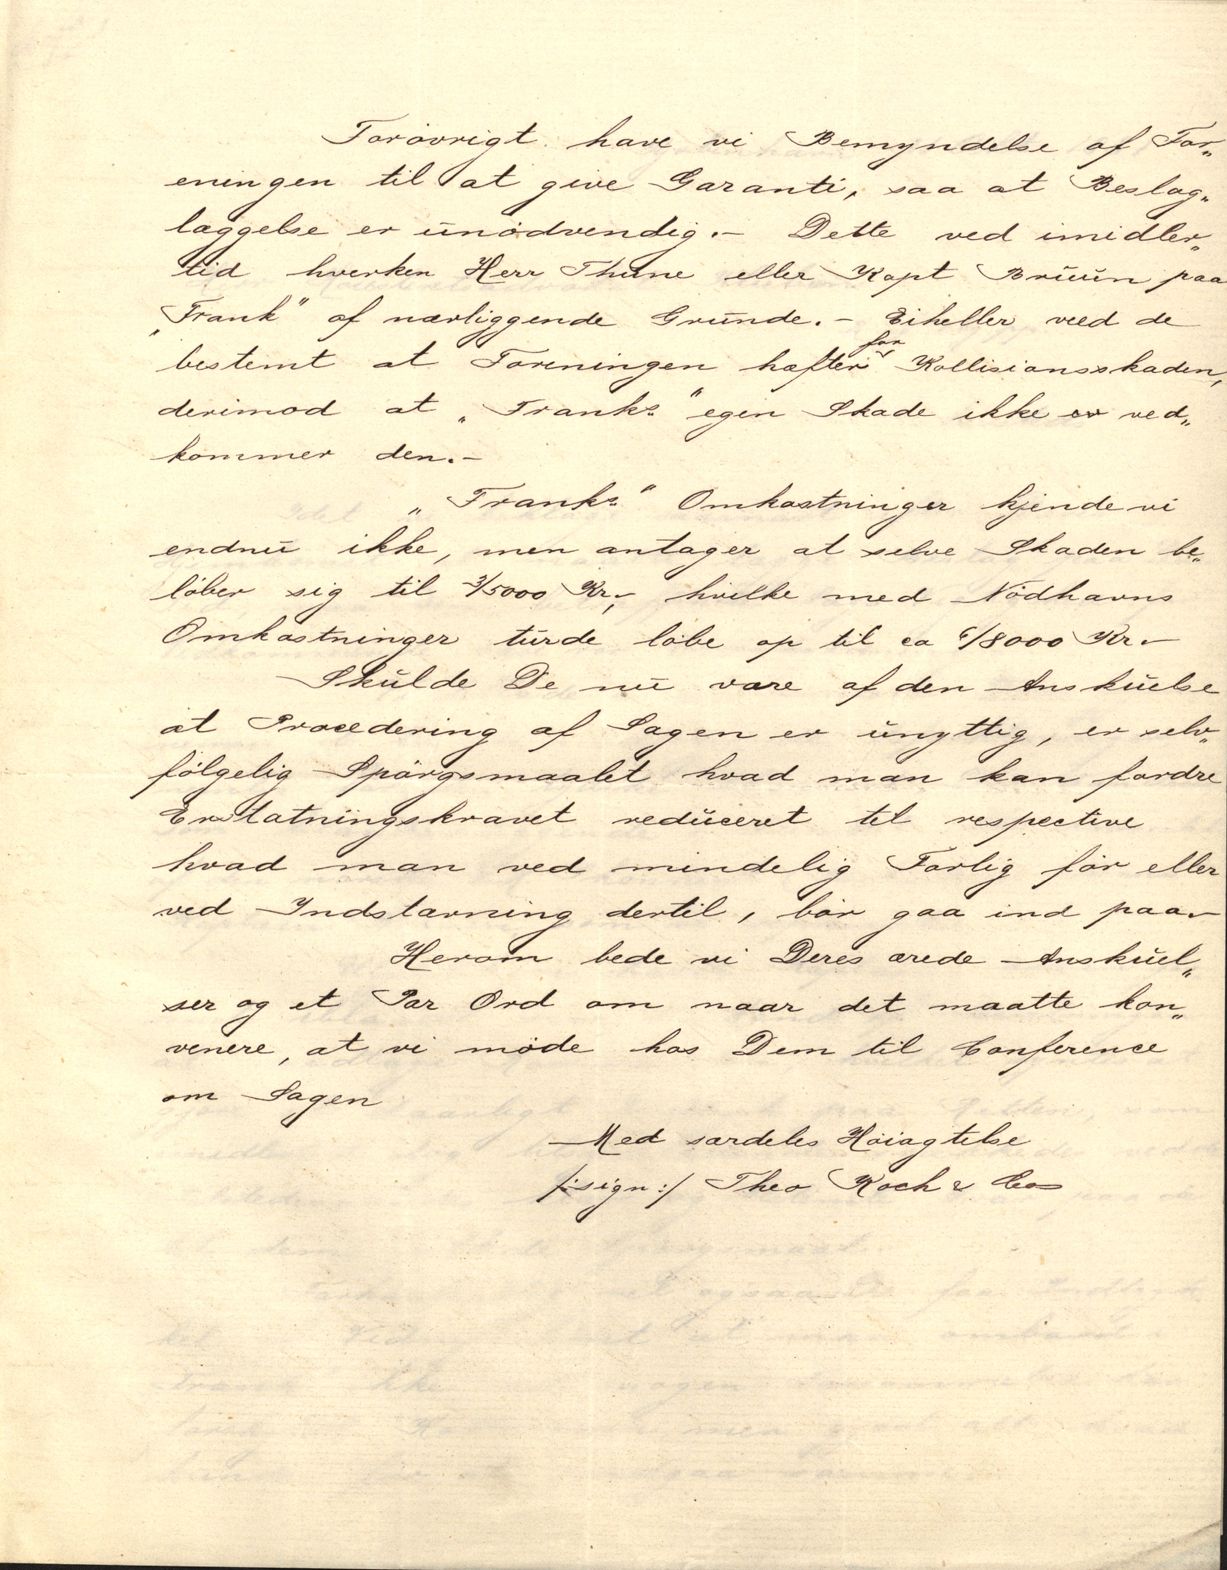 Forøvrigt have vi Bemyndelse af For„
eningen til at give Garanti, saa at Beslag„
læggelse er unødvendig.– Dette ved imidler„
tid hverken Herr Thune eller Kapt Bruun paa
„Frank" af nærliggende Grunde.– Eiheller veed de
bestemt at Foreningen hæfter for Kollisionsskaden,
derimod at „Franks" egen Skade ikke er ved„
kommer den.–
„Franks" Omkostninger kjende vi
endnu ikke, men antager at selve Skaden be„
løber sig til 3/5000 Kr., hvilke med Nødhavns
Omkostninger turde løbe op til ca 6/8000 Kr.–
Skulde De nu være af den Anskuelse
at Procedering af Sagen er unyttig, er selv„
følgelig Spørgsmaalet hvad man kan fordre
Erstatningskravet reduceret til respective
hvad man ved mindelig Forlig før eller
ved Indstævning dertil, bør gaa ind paa.–
Herom bede vi Deres ærede Anskuel„
ser og et Par Ord om naar det maatte kon„
venere, at vi møde hos Dem til Conference
om Sagen
Med særdeles Høiagtelse
/:sign:/ Theo Koch & Co